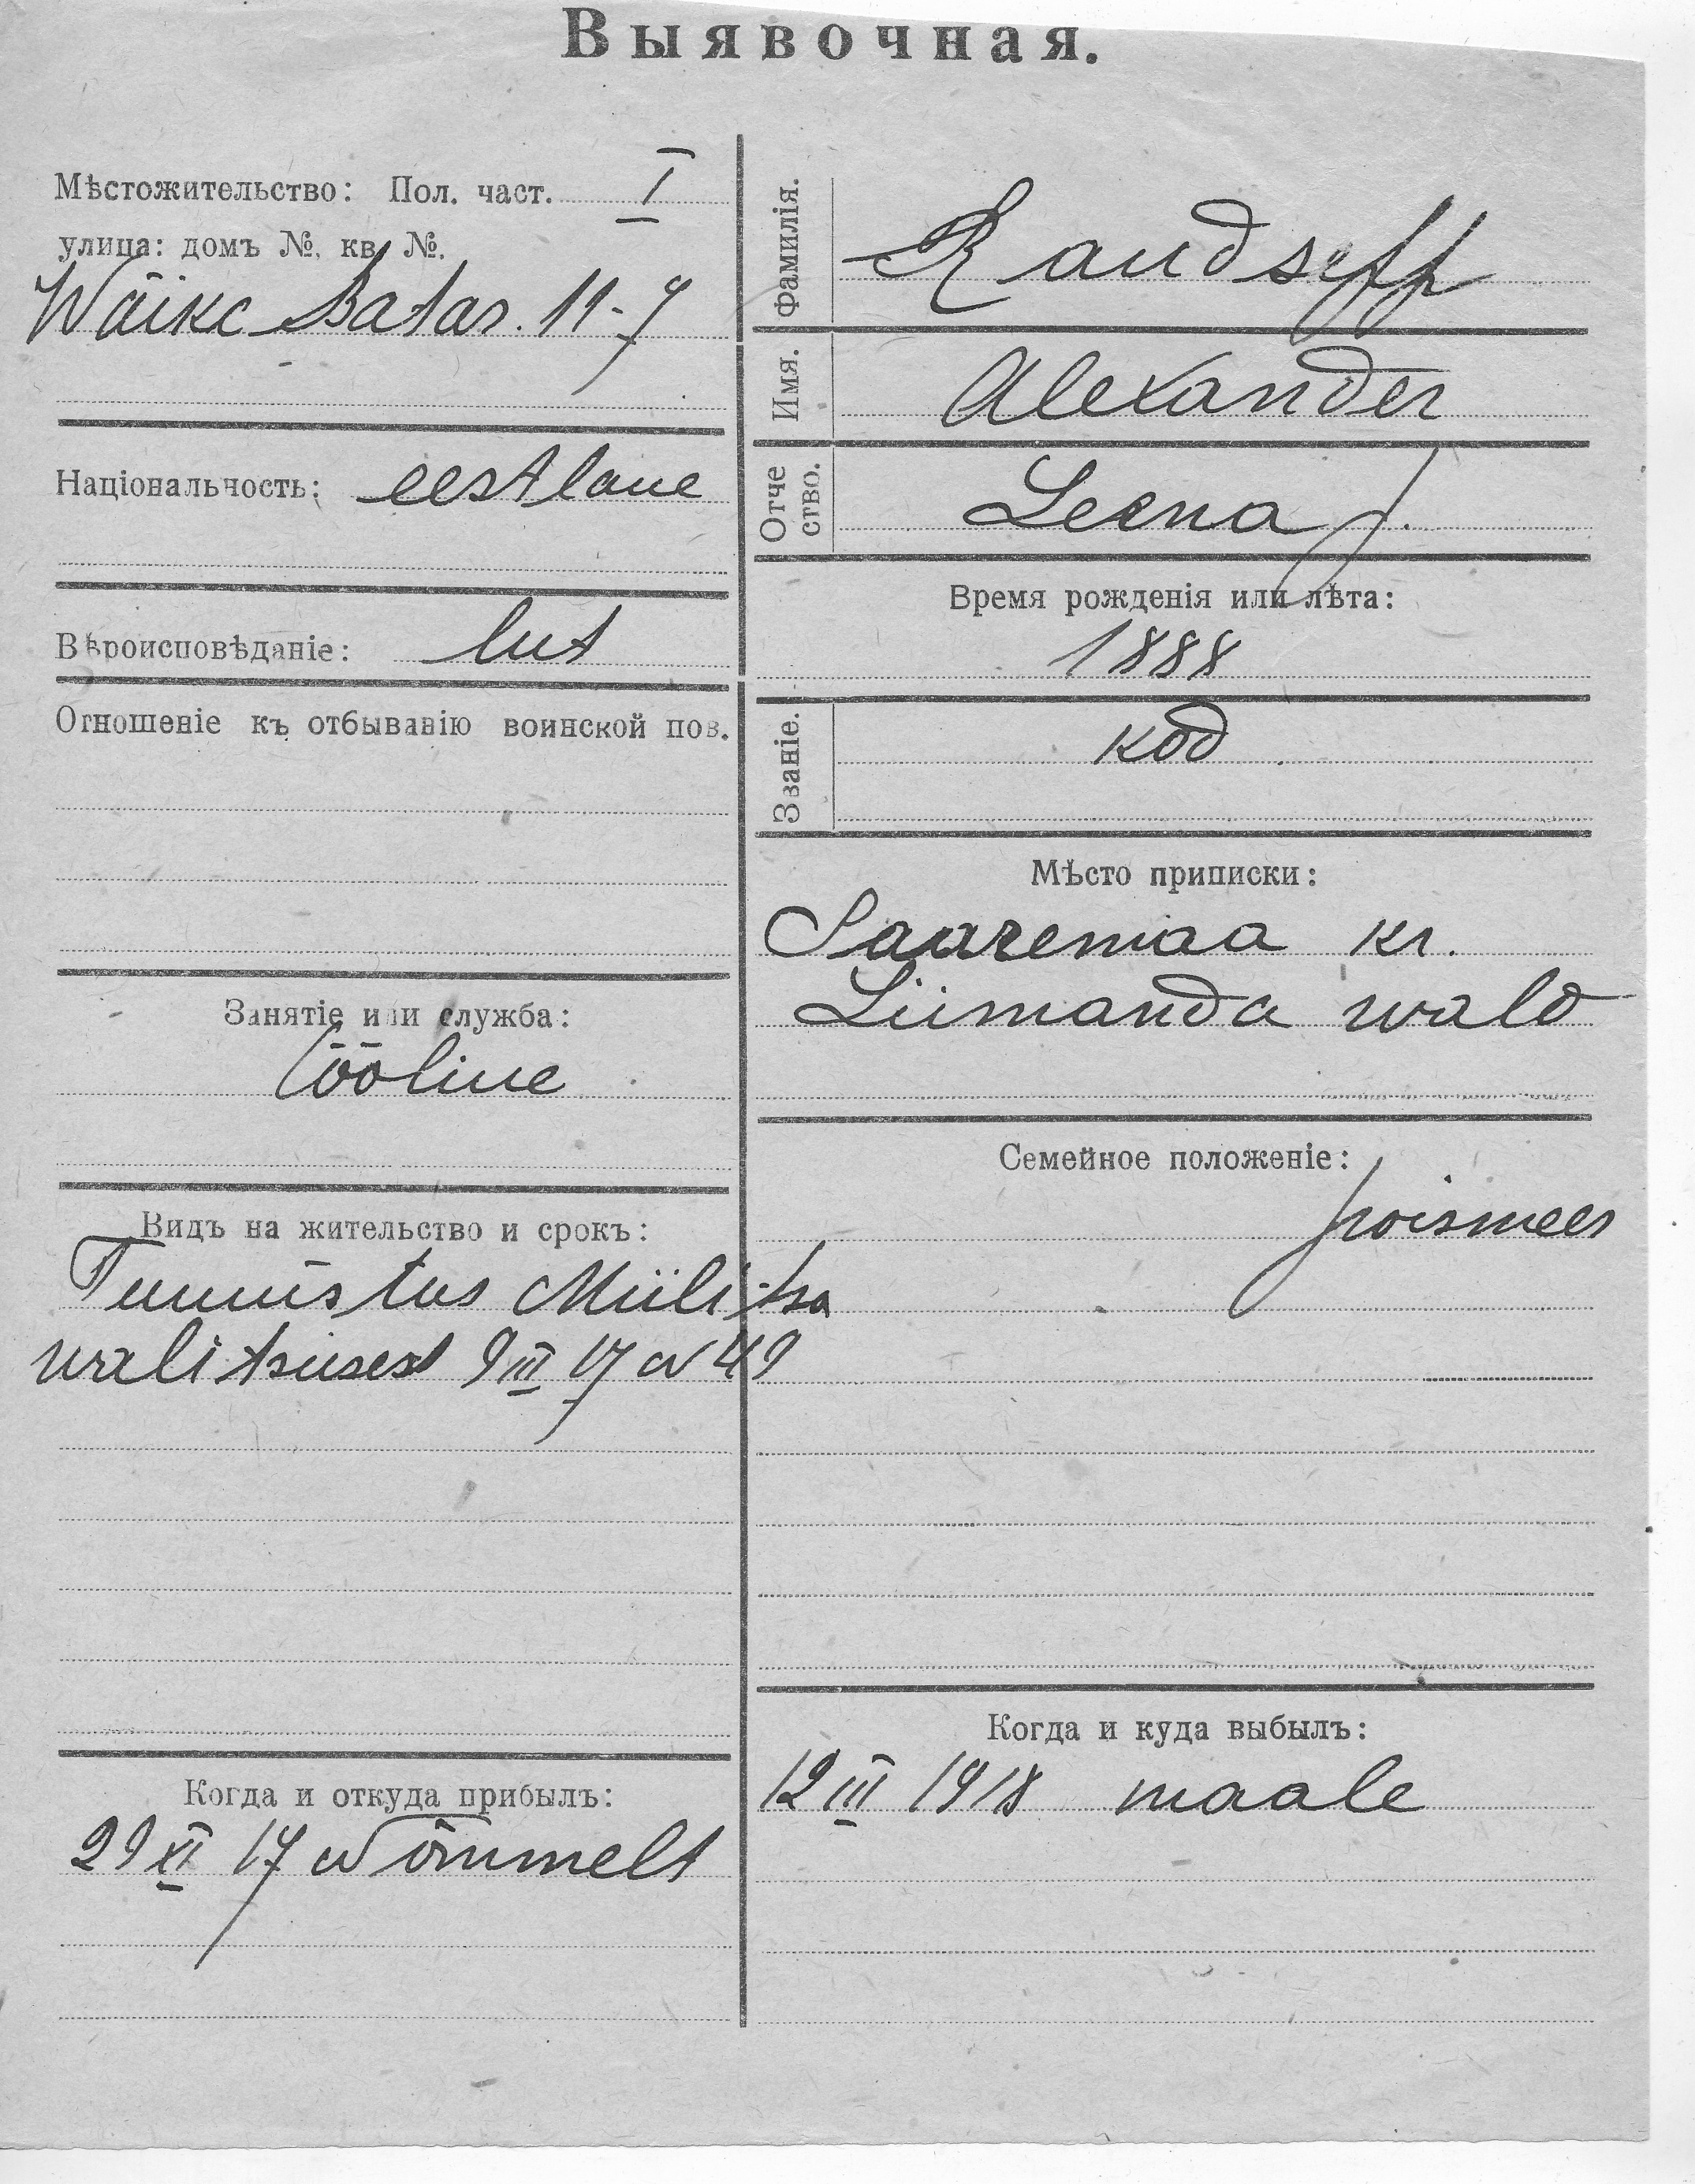 Выявочная.
Мѣстожительство: Пол. част. I
улица: домъ №. кв. №.
Wäike Batar. 11-7
Національность: eestlane
Вѣроисповѣданіе: lut
Отношеніе къ отбыванію воинской пов.
Занятіе или служба:
tööline
Видъ на жительство и срокъ:
Tunnistus Miilitsa
walitsusest 9 III 17 N 49
Когда и откуда прибылъ:
29 XI 17 Nõmmelt
Фамилія. Randsepp
Имя. Alexander
Отчество. Leena p.
Время рожденія или лѣта:
1888
Званіе. kod
Мѣсто приписки:
Saaremaa kr.
Liimanda wald
Семейное положеніе:
poismees
Когда и куда выбылъ:
12 III 1918 maale